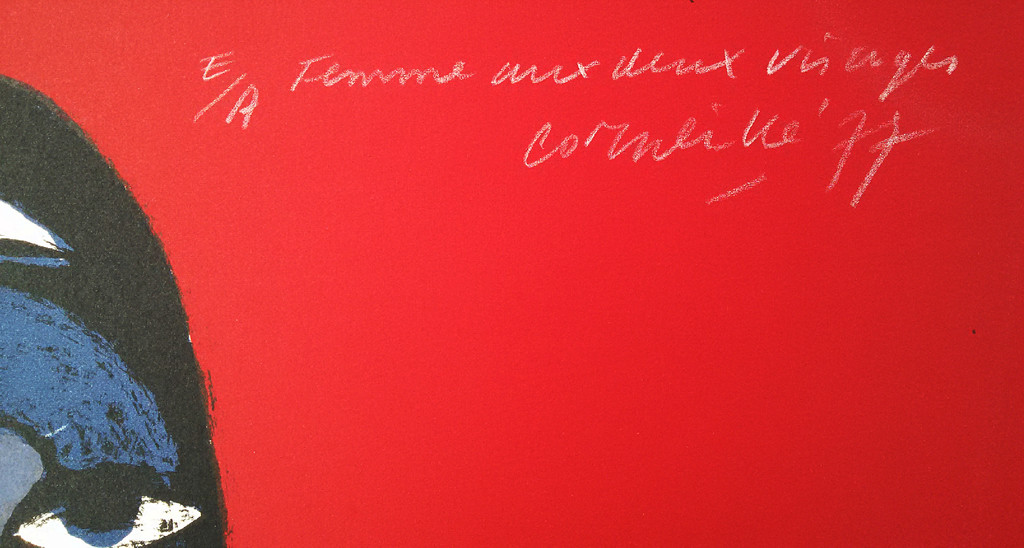 E/A Femme aux deux visages
Corneille '77